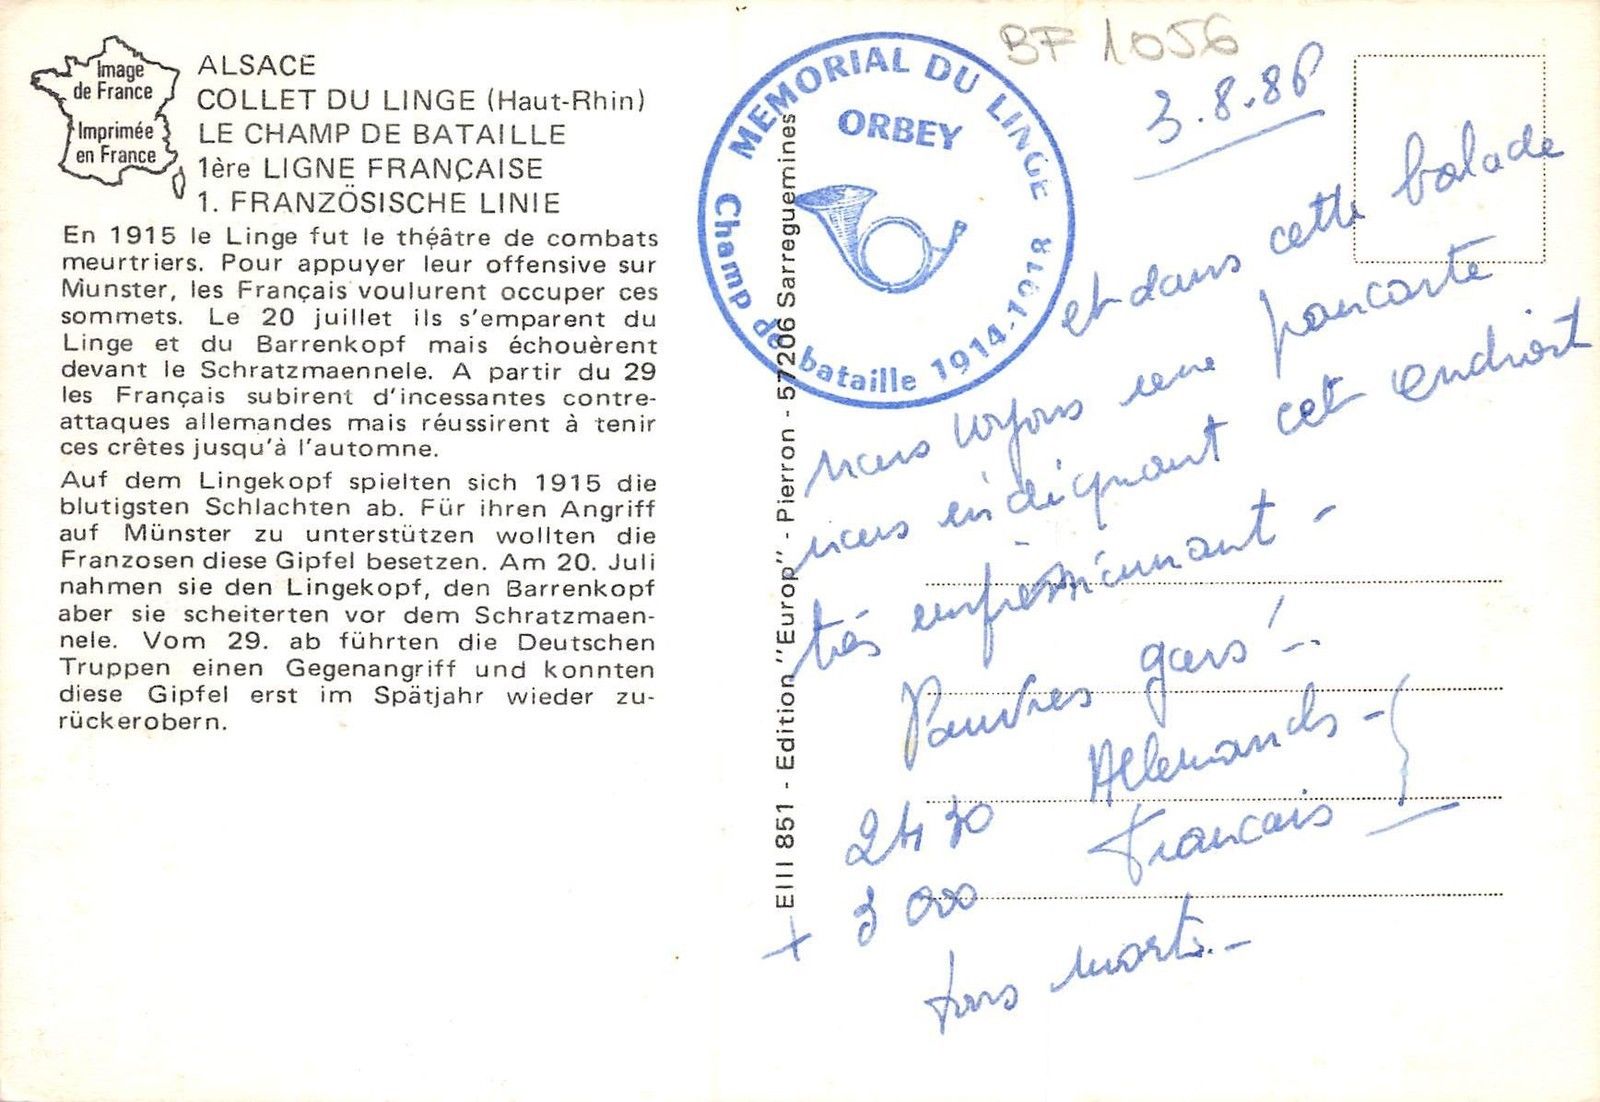 Image
de France
Imprimée
en France
ALSACE
COLLET DU LINGE (Haut-Rhin)
LE CHAMP DE BATAILLE
1ère LIGNE FRANÇAISE
1. FRANZÖSISCHE LINIE
En 1915 le Linge fut le théâtre de combats
meurtriers. Pour appuyer leur offensive sur
Munster, les Français voulurent occuper ces
sommets. Le 20 juillet ils s'emparent du
Linge et du Barrenkopf mais échouèrent
devant le Schratzmaennele. A partir du 29
les Français subirent d'incessantes contre-
attaques allemandes mais réussirent à tenir
ces crêtes jusqu'à l'automne.
Auf dem Lingekopf spielten sich 1915 die
blutigsten Schlachten ab. Für ihren Angriff
auf Münster zu unterstützen wollten die
Franzosen diese Gipfel besetzen. Am 20. Juli
nahmen sie den Lingekopf, den Barrenkopf
aber sie scheiterten vor dem Schratzmaen-
nele. Vom 29. ab führten die Deutschen
Truppen einen Gegenangriff und konnten
diese Gipfel erst im Spätjahr wieder zu-
rückerobern.
EIII 851 - Edition "Europ" - Pierron - 57206 Sarreguemines
MEMORIAL DU LINGE
ORBEY
Champ de bataille 1914-1918
BF 1056
3.8.86
et dans cette balade
nous voyons une pancarte
nous indiquant cet endroit
très impressionnant -
Pauvres gars !..
2430 Allemands -
+ 3 000 Francais
tous morts. -